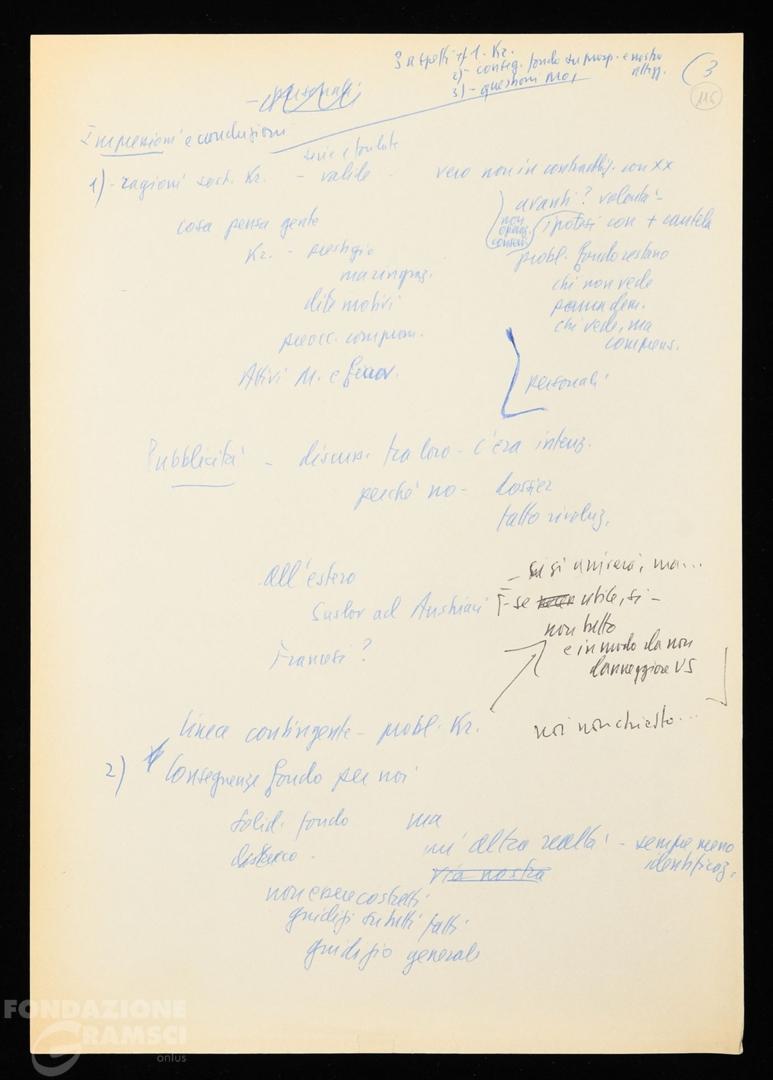 3 aspetti + 1. Kr.
2) - conseg. fondo su prosp. e nostro attegg.
3) - questioni mov.
3
115
Impressioni e conclusioni
serie e fondate
1) - ragioni sost. Kr. - valide - vero non in contradd. con XX
avanti? volontà -
cosa pensa gente
ipotesi con + cautela
non
Kr. - prestigio
probl. fondo restano
ma
chi non vede
dite motivi
chi vede, ma
preocc. comprom.
compens.
Attivi M. e
personali
Pubblicità - discuss. tra loro - c'era intenz.
perché no - dossier
fatto rivoluz.
all'estero
- si si arriverà, ma...
Suslov ad Austriaci
- se utile, sì -
non tutto
Francesi?
e in modo da non
danneggiare VS
linea contingente - probl. Kr.
noi non chiesto...
2) Conseguenze fondo per noi
solid. fondo ma
distacco -
un'altra realtà - sempre meno
identificaz.
via nostra
non essere costretti
giudizi su tutti fatti
giudizio generale
FONDAZIONE
GRAMSCI
onlus